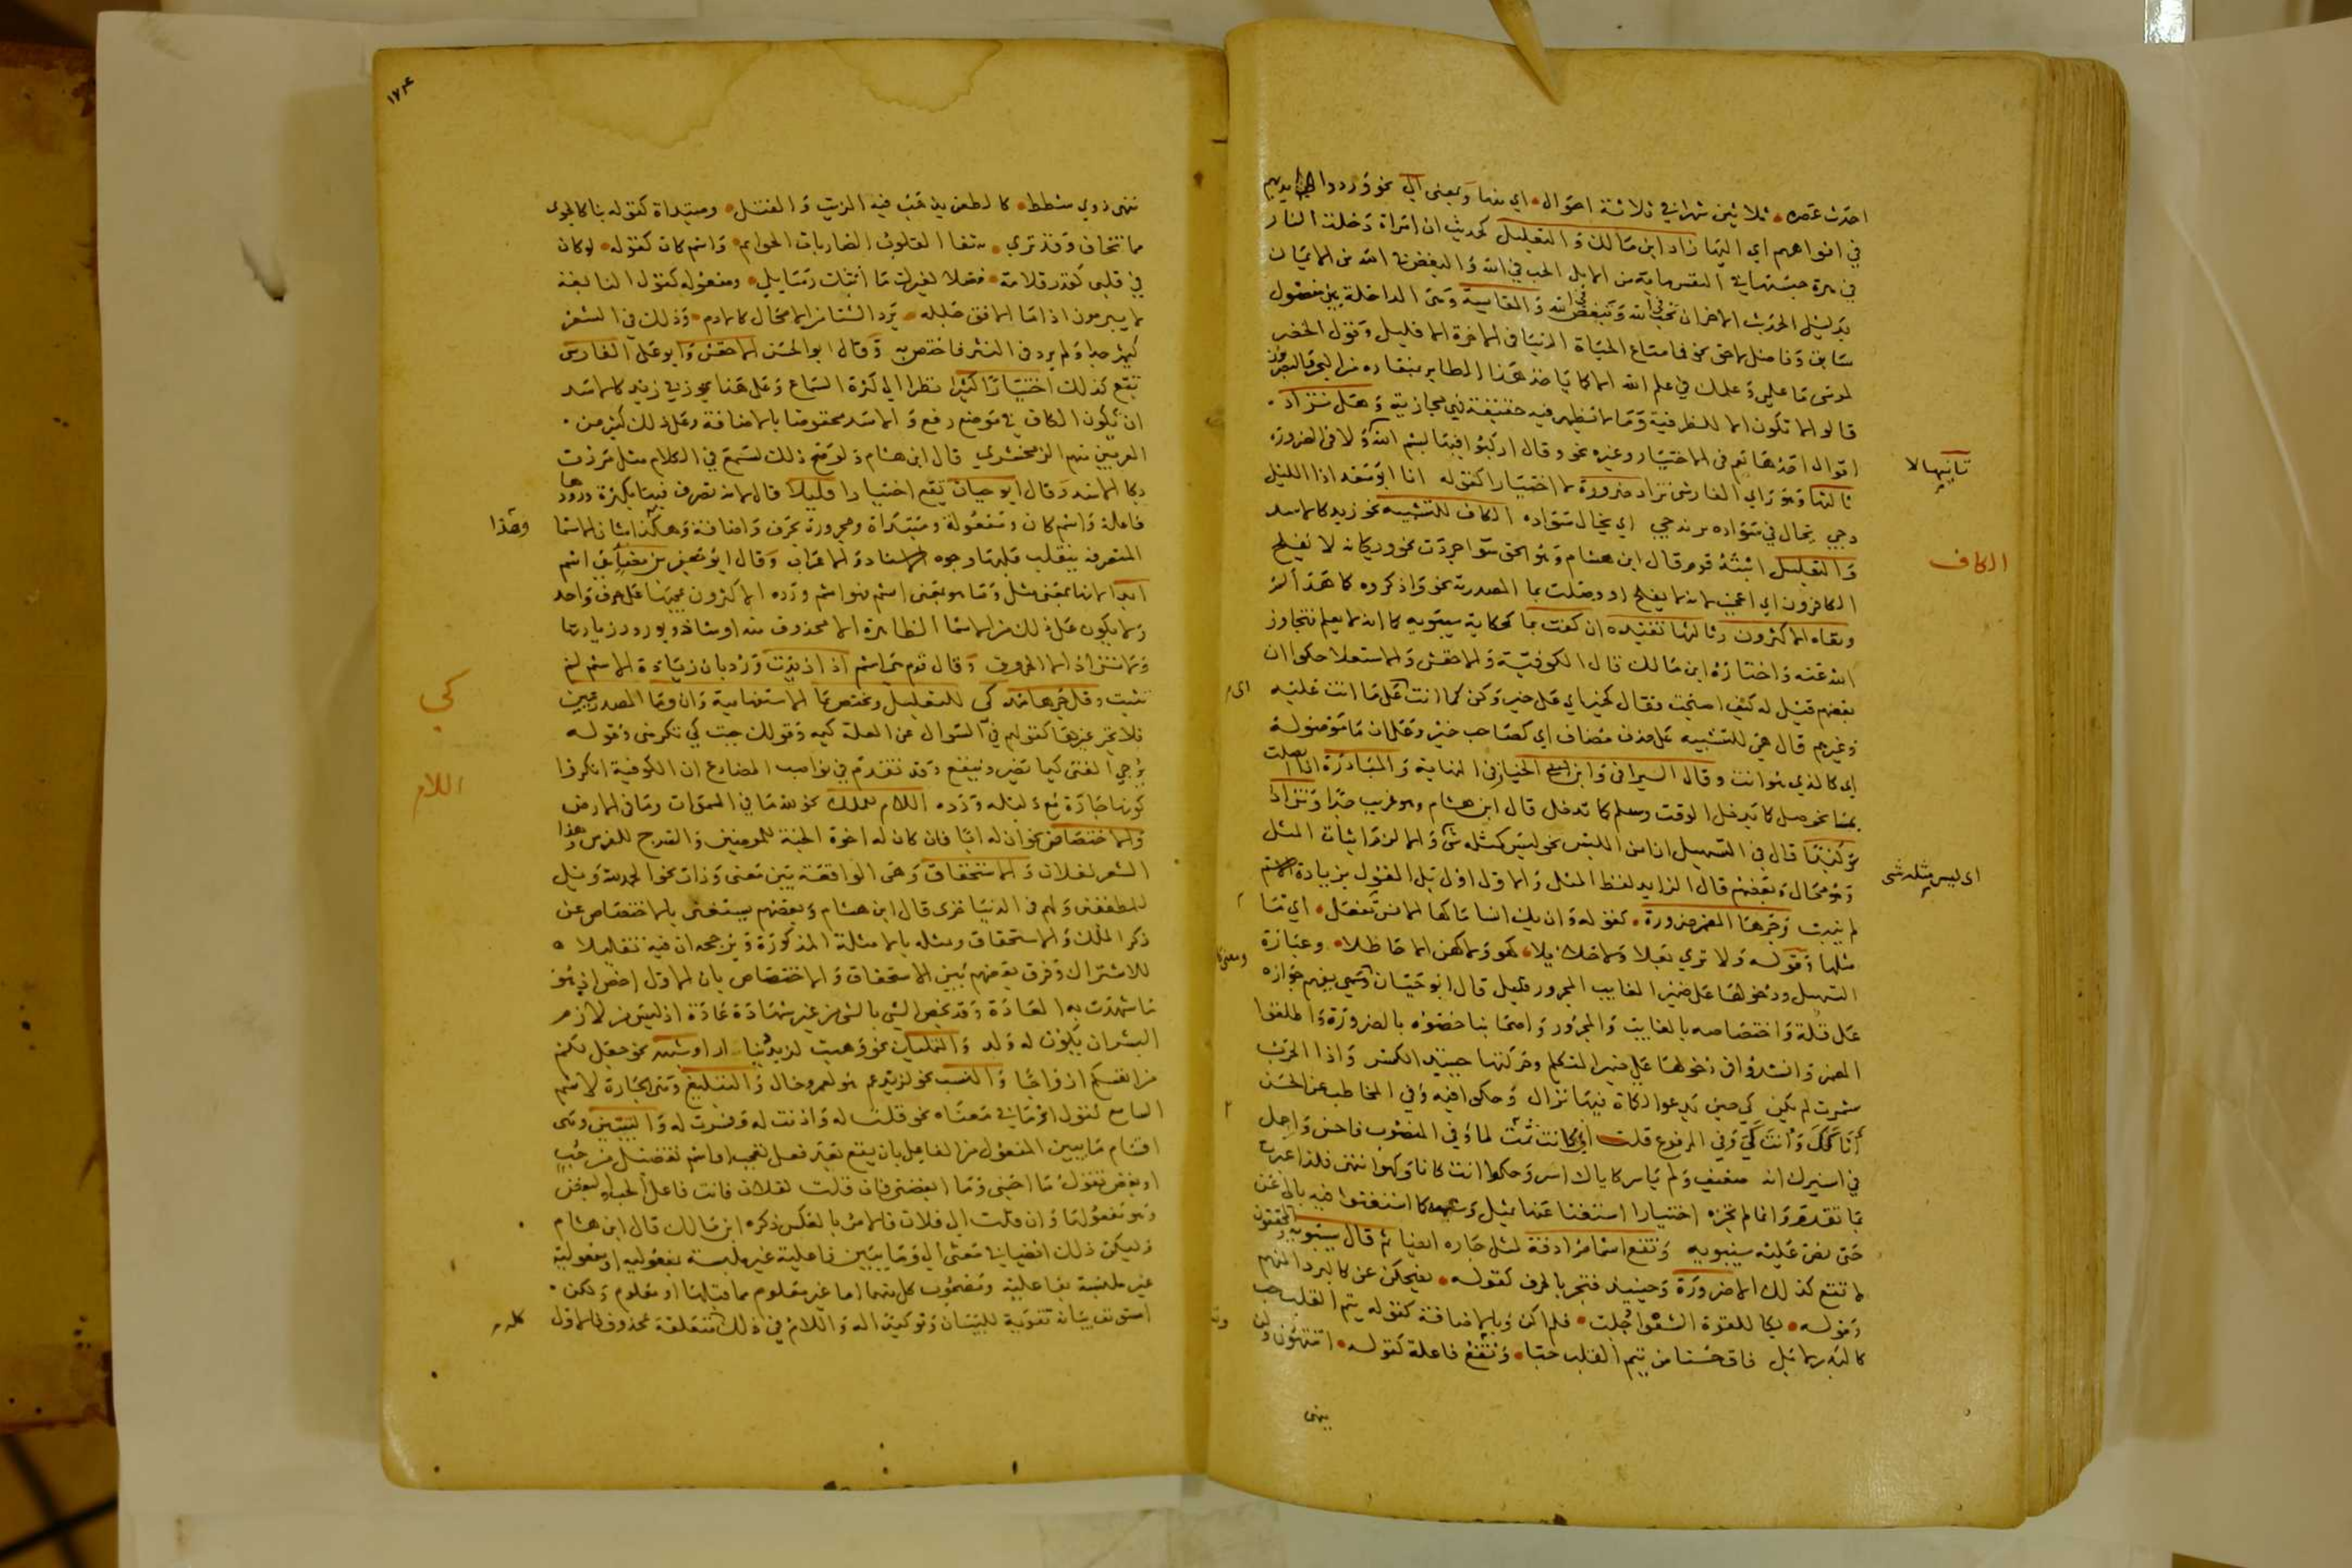 احدث عصره ثلاثين شهرا في ثلاثة احوال اي معها وبمعنى الى نحو فردوا ايديهم
في افواههم اي اليها زاد ابن مالك والتعليل كحديث ان امراة دخلت النار
في هرة حبستها الحب في الله والبغض في الله من الايمان
بدليل الحديث الاخر ان تحب في الله وتبغض في الله والمقايسة وهي الداخلة بين مفضول
سابق وفاضل لاحق نحو فما متاع الحياة الدنيا في الاخرة الا قليل وقول الخضر
لموسى ما علمي وعلمك في علم الله الا كما ياخذ هذا الطاير بمنقاره من البحر
قالوا لا تكون الا للظرفية وما لا تظهر فيه حقيقة فهي مجازية وهل تزاد
اقوال احدها نعم في الاختيار وغيره نحو وقال اركبوا فيها بسم الله لا في الضرورة
ثانيها لا
ثالثها وهو راي الفارسي تزاد ضرورة لا اختيارا كقوله انا ابو سعد اذا الليل
دجى يخال في سواده يرندجا اي يخال سواده الكاف للتشبيه نحو زيد كالاسد
الكاف
والتعليل اثبته قوم قال ابن هشام وهو الحق سوا جردت نحو ويكانه لا يفلح
الكافرون اي اعجب لانه لا يفلح او وصلت بما المصدرية نحو واذكروه كما هداكم
ونفاه الاكثرون وثالثها تقييده ان كفت بما كحكاية سيبويه كما انه لا يعلم فتجاوز
الله عنه واختاره ابن مالك قال الكوفية والاخفش والاستعلا حكوا ان
بعضهم قيل له كيف اصبحت فقال كخير اي على خير وكن كما انت اي على ما انت عليه
وغيرهم قال هي للتشبيه على حذف مضاف اي كصاحب خير وعلى ان ما موصولة
اي كالذي هو انت وقال السيرافي وابن الخباز في النهاية والمبادرة اذا اتصلت
بما نحو صل كما يدخل الوقت وسلم كما تدخل قال ابن هشام وهو غريب جدا وتزاد
توكيدا قال في التسهيل ان امن اللبس نحو ليس كمثله شي والا لزم اثبات المثل
اي ليس مثله شي
وهو محال وبعضهم قال الزايد لفظ المثل والاول اولى بل القول بزيادة الاسم
لم يثبت وجرها المضمر ضرورة كقوله وان يك انسا ما كها الانس تفعل اي ما
مثلها وقوله ولا ترى بعلا ولا حلائلا كهو ولا كهن الا حاظلا وعبارة
التسهيل ودخولها على ضمير الغايب المجرور قليل قال ابو حيان
على قلة واختصاصه بالغايب والمجرور واصحابنا خصوه بالضرورة واطلقوا
شمرت لم تكن كي حين تدعوا الكماة فيها نزال وحكوا فيه وفي المخاطب عن الحسن
انا كك وانت كي وفي المرفوع
حتى نص عليه سيبويه وتقع اسما مرادفة لمثل جارة ايضا ثم قال سيبويه والمحققون
لا تقع كذلك الا ضرورة وحينيذ فتجر بالحرف كقوله يضحكن عن كالبرد المنهم
وقوله بكا للقوة الشغوا جلت فلم اكن وبالاضافة كقوله تيم القلب حب
كالبدر لا بل فاق حسنا من تيم القلب حبا وتقع فاعلة كقوله اتنتهون ولن
ينهى
١٧٤
ينهى ذوي شطط كالطعن يذهب فيه الزيت والفتل ومبتداة كقوله بنا كالجوى
مما نخاف وقد ترى شفا القلوب الصاديات الحوايم واسم كان كقوله لو كان
في قلبي كقدر قلامة فضلا لغيرك ما اتتك رسايلي ومفعوله كقول النابغة
لا يبرمون اذا ما الافق جلله برد الشتا من الامحال كالادم وذلك في الشعر
كثير جدا ولم يرد في النثر فاختص به وقال ابو الحسن الاخفش وابو علي الفارسي
تقع كذلك اختيارا كثيرا نظرا الى كثرة السماع وعلى هذا يجوز في زيد كالاسد
ان تكون الكاف في موضع رفع والاسد مخفوضا بالاضافة وعلى ذلك كثير من
المعربين منهم الزمخشري قال ابن هشام ولو صح ذلك لسمع في الكلام مثل مررت
بكالاسد وقال ابو حيان تقع اختيارا قليلا قال لانه تصرف فيها بكثرة ورودها
فاعلة واسم كان ومفعولة ومبتداة ومجرورة بحرف واضافة وهكذا شان الاسما
وهذا
المتصرفة يتقلب عليها وجوه الاعراب وقال ابو جعفر بن مضا هي اسم
ابدا لانها بمعنى مثل وما هو بمعنى اسم فهو اسم ورده الاكثرون بمجيئها على حرف واحد
ولا يكون على ذلك من الاسما الظاهرة الا محذوف منه او شاذ وبورود زيادتها
ولا تزاد الا الحروف وقال قوم هي اسم اذا زيدت ورد بان زيادة الاسم لم
تثبت كي للتعليل وتختص بما الاستفهامية وان وما المصدريتين
كي
فلا تجر غيرها كقولهم في السوال عن العلة كيمه وقولك جيت كي تكرمني وقوله
يرجى الفتى كيما يضر وينفع وقد تقدم في نواصب المضارع ان الكوفية انكروا
كونها جارة مع دليله ورده اللام للملك نحو لله ما في السموات وما في الارض
اللام
والاختصاص نحو ان له ابا فان كان له اخوة الجنة للمومنين والسرج للفرس وهذا
الشعر لفلان والاستحقاق وهي الواقعة بين معنى وذات نحو الحمد لله وويل
للمطففين ولهم في الدنيا خزى قال ابن هشام وبعضهم يستغني بالاختصاص عن
ذكر الملك والاستحقاق ومثله بالامثلة المذكورة ويرجحه ان فيه تقليلا
للاشتراك وفرق بعضهم بين الاستحقاق والاختصاص بان الاول اخص اذ هو
ما شهدت به العادة وقد يختص الشي بالشي من غير شهادة عادة اذ ليس من لازم
البشر ان يكون له ولد والتمليك نحو وهبت لزيد دينارا او شبهه نحو جعل لكم
من انفسكم ازواجا والنسب نحو لزيد عم هو لعمرو خال والتبليغ وهي الجارة لاسم
السامع لقول او ما في معناه نحو قلت له واذنت له وفسرت له والتبيين وهي
اقسام ما يبين المفعول من الفاعل بان يقع بعد فعل تعجب او اسم تفضيل من حب
او بغض تقول ما احبني وما ابغضني فان قلت لفلان فانت فاعل الحب والبغض
وهو مفعولهما وان قلت الى فلان فالامر بالعكس ذكره ابن مالك قال ابن هشام
وما يبين فاعلية غير ملتبسة بمفعولية او مفعولية
غير ملتبسة بفاعلية ومصحوب كل منهما اما غير معلوم مما قبلها او معلوم ولكن
استونف بيانه تقوية للبيان وتوكيدا له واللام في ذلك كله متعلقة بمحذوف فالاول